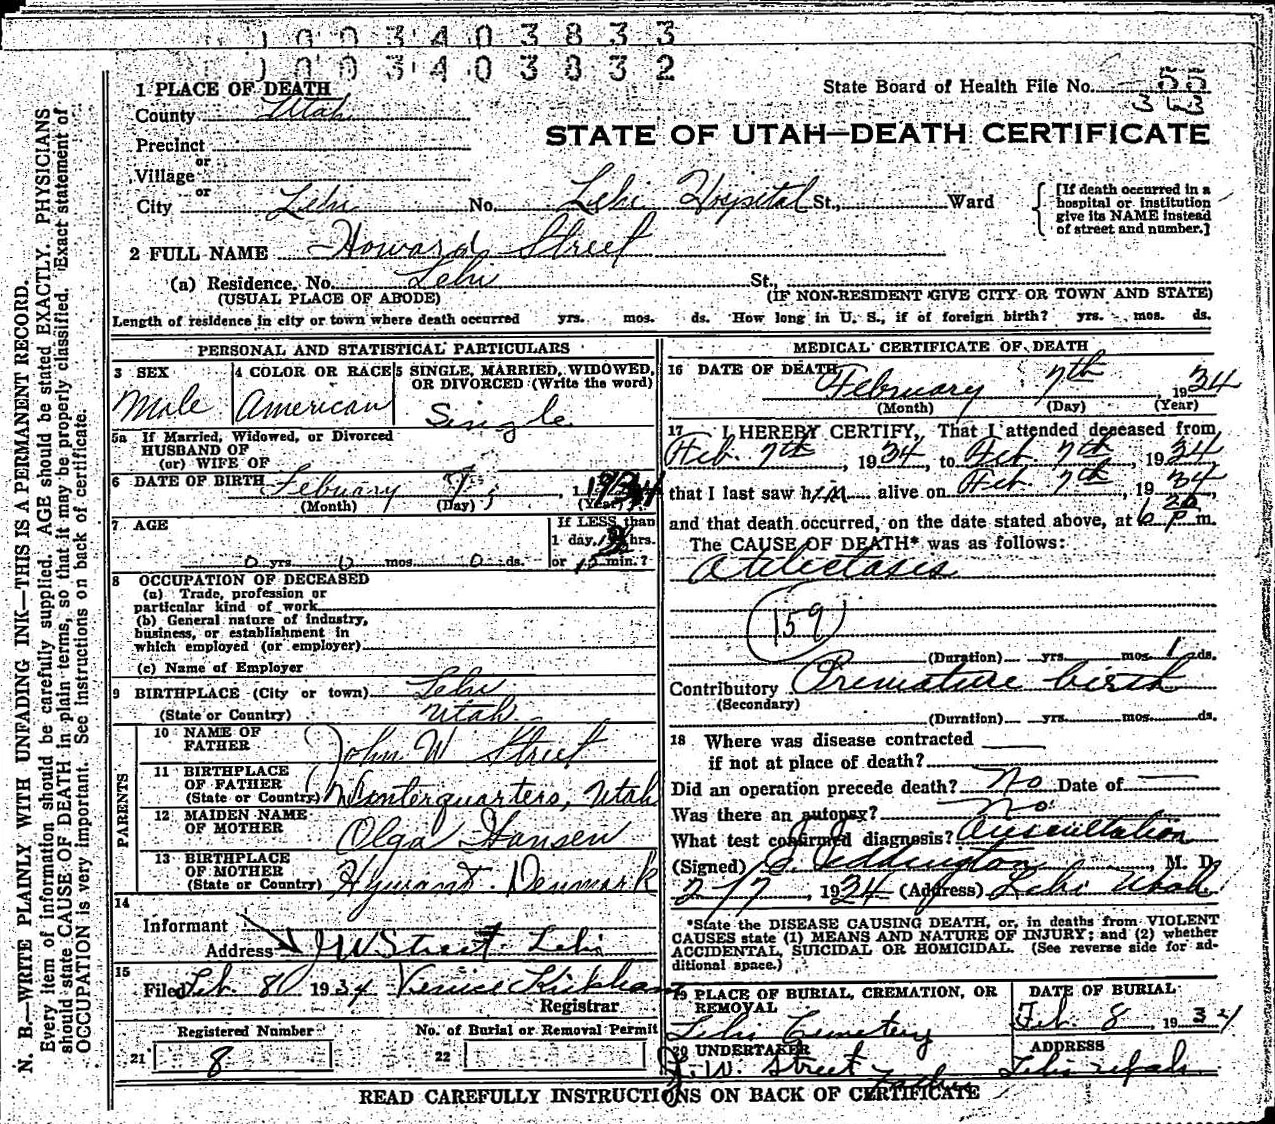 1 0 0 3 4 0 3 8 3 3
1 0 0 3 4 0 3 8 3 2
1 PLACE OF DEATH
State Board of Health File No. 55
353
County Utah
STATE OF UTAH—DEATH CERTIFICATE
Precinct
or
Village
or
City Lehi No. Lehi Hospital St., Ward
[If death occurred in a hospital or institution give its NAME instead of street and number.]
2 FULL NAME Howard Street
(a) Residence, No. Lehi St.,
(USUAL PLACE OF ABODE) (IF NON-RESIDENT GIVE CITY OR TOWN AND STATE)
Length of residence in city or town where death occurred yrs. mos. ds. How long in U. S., if of foreign birth? yrs. mos. ds.
PERSONAL AND STATISTICAL PARTICULARS
3 SEX 4 COLOR OR RACE 5 SINGLE, MARRIED, WIDOWED, OR DIVORCED (Write the word)
Male American Single
5a If Married, Widowed, or Divorced
HUSBAND OF
(or) WIFE OF
6 DATE OF BIRTH Febuary 7
(Month) (Day) (Year)
7 AGE
If LESS than
1 day, hrs.
0 yrs. 0 mos. 0 ds. or min.?
8 OCCUPATION OF DECEASED
(a) Trade, profession or
particular kind of work
(b) General nature of industry,
business, or establishment in
which employed (or employer)
(c) Name of Employer
9 BIRTHPLACE (City or town) Lehi
(State or Country) Utah
PARENTS
10 NAME OF
FATHER John W Street
11 BIRTHPLACE
OF FATHER
(State or Country) Winterquarters, Utah
12 MAIDEN NAME
OF MOTHER Olga Hansen
13 BIRTHPLACE
OF MOTHER
(State or Country) Denmark
14
Informant
Address J W Street Lehi
15
Filed Feb. 8 1934 Venice Kirkham
Registrar
Registered Number No. of Burial or Removal Permit
21 8 22
MEDICAL CERTIFICATE OF DEATH
16 DATE OF DEATH
February 7th, 1934
(Month) (Day) (Year)
17 I HEREBY CERTIFY, That I attended deceased from
Feb. 7th, 1934, to Feb 7th, 1934
that I last saw him alive on Feb 7th, 1934,
and that death occurred, on the date stated above, at 6 20 p m.
The CAUSE OF DEATH* was as follows:
Atelectasis
159
(Duration) yrs. mos. 1 ds.
Contributory Premature birth
(Secondary)
(Duration) yrs. mos. ds.
18 Where was disease contracted
if not at place of death?
Did an operation precede death? No Date of
Was there an autopsy? No
What test confirmed diagnosis? Auscultation
(Signed) Eddington, M. D.
2/7, 1934 (Address) Lehi Utah
*State the DISEASE CAUSING DEATH, or, in deaths from VIOLENT
CAUSES state (1) MEANS AND NATURE OF INJURY; and (2) whether
ACCIDENTAL, SUICIDAL OR HOMICIDAL. (See reverse side for ad-
ditional space.)
19 PLACE OF BURIAL, CREMATION, OR REMOVAL DATE OF BURIAL
Lehi Cemetery Feb. 8, 1934
20 UNDERTAKER ADDRESS
J. W. Street Father Lehi Utah
READ CAREFULLY INSTRUCTIONS ON BACK OF CERTIFICATE
N. B.—WRITE PLAINLY WITH UNFADING INK—THIS IS A PERMANENT RECORD.
Every item of information should be carefully supplied. AGE should be stated EXACTLY. PHYSICIANS
should state CAUSE OF DEATH in plain terms, so that it may be properly classified. Exact statement of
OCCUPATION is very important. See instructions on back of certificate.